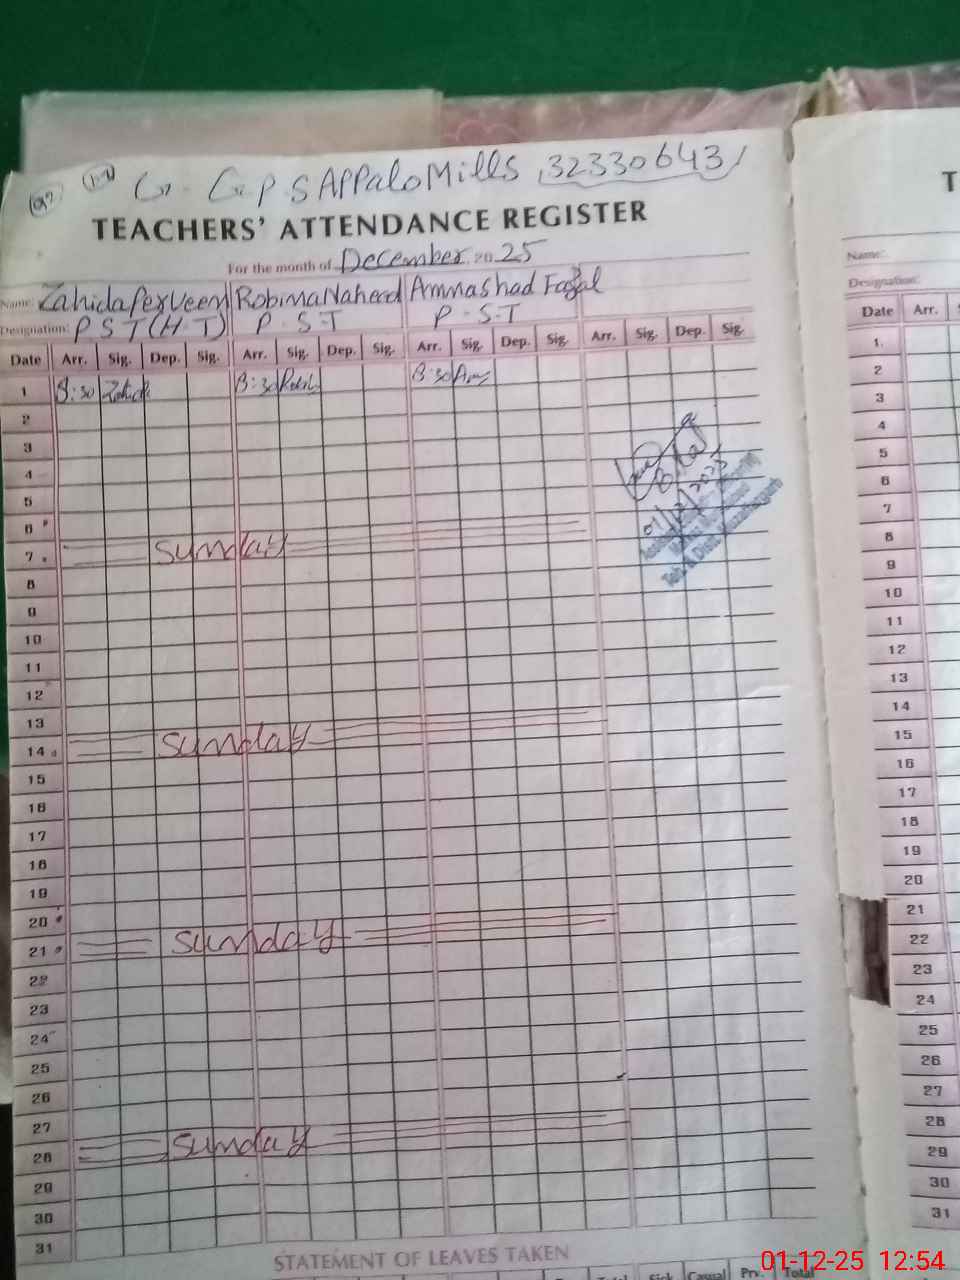 G. G.P.S APPalo Mills, 32330643
TEACHERS' ATTENDANCE REGISTER
For the month of December 20 25
Name: Zahida Perveen Robina Naheed Amna shad Fazal
Designation: P S T (H.T) P.S.T P.S.T
Date Arr. Sig. Dep. Sig. Arr. Sig. Dep. Sig. Arr. Sig. Dep. Sig. Arr. Sig. Dep. Sig.
1 8:30 8:30 8:30
2
3
4
5
6
7 Sunday
8
9
10
11
12
13
14 Sunday
15
16
17
18
19
20
21 Sunday
22
23
24
25
26
27
28 Sunday
29
30
31
STATEMENT OF LEAVES TAKEN
Total Sick Casual Prv. Total
T
Name:
Designation:
Date Arr.
1.
2
3
4
5
6
7
8
9
10
11
12
13
14
15
16
17
18
19
20
21
22
23
24
25
26
27
28
29
30
31
01-12-25 12:54